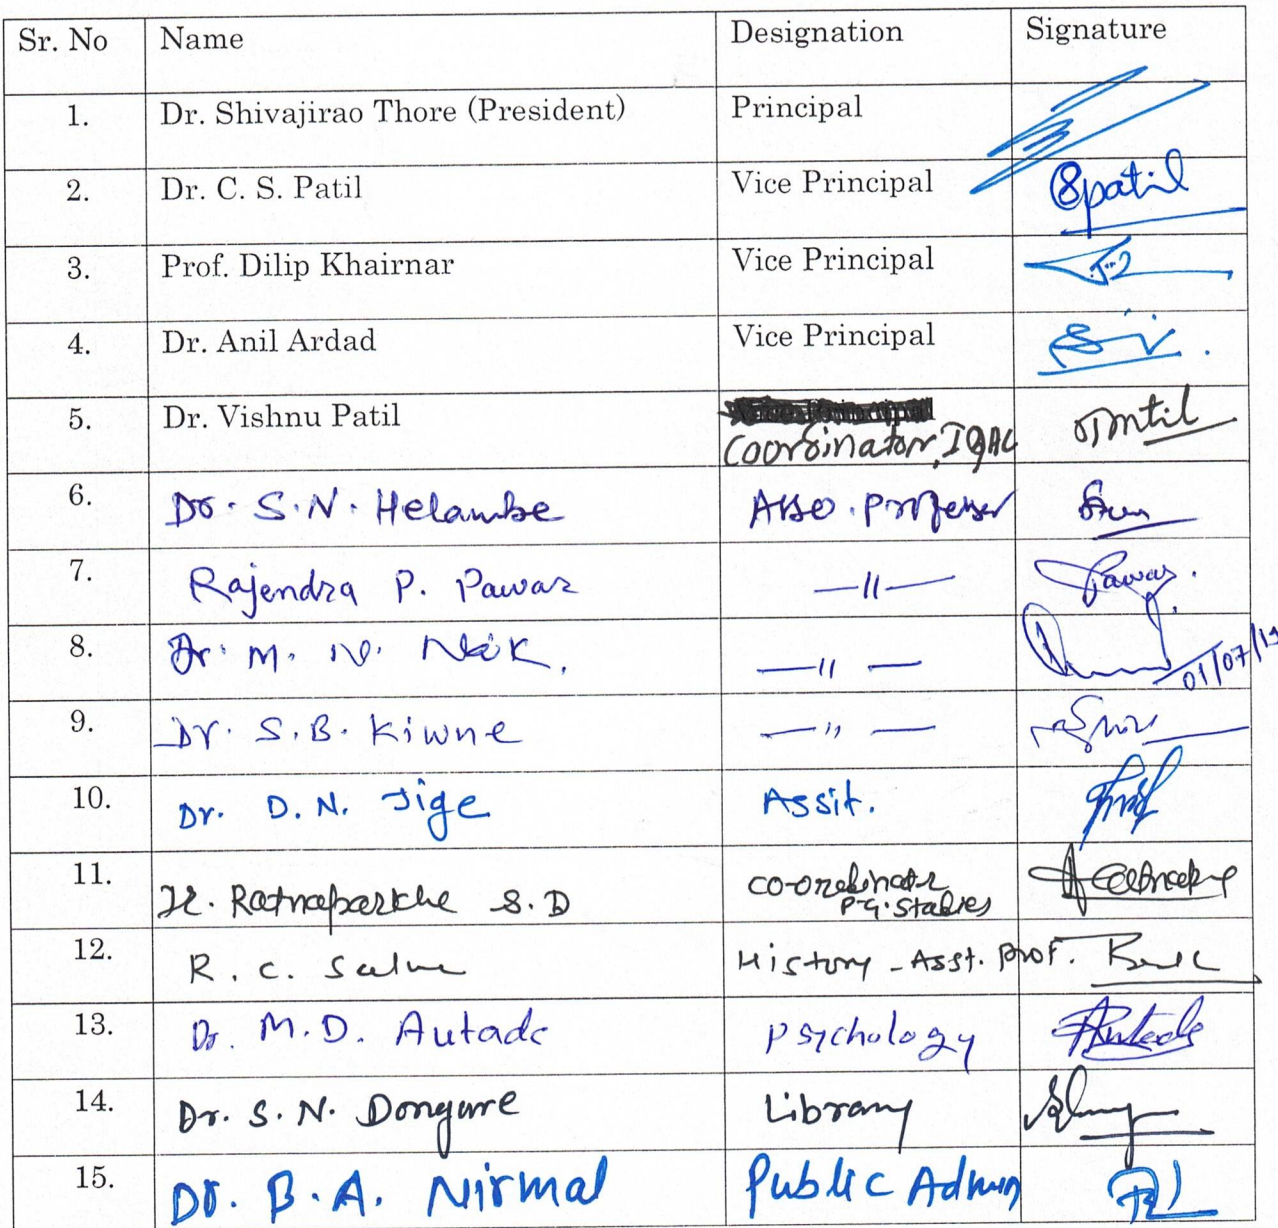 Sr. No Name Designation Signature
1. Dr. Shivajirao Thore (President) Principal
2. Dr. C. S. Patil Vice Principal Spatil
3. Prof. Dilip Khairnar Vice Principal
4. Dr. Anil Ardad Vice Principal
5. Dr. Vishnu Patil
Coordinator, IQAC
6. Dr. S. N. Helambe Asso. Professor
7. Rajendra P. Pawar —11— Pawar.
8. Dr. M. N. Naik. —11— 01/07/19
9. Dr. S. B. Kiwne —11—
10. Dr. D. N. Jige Assit.
11. Dr. Ratnaparkhe S. D co-ordinator
P.G. Studies
12. R. C. Salve History - Asst. Prof.
13. Dr. M. D. Autade Psychology Autade
14. Dr. S. N. Dongare Library
15. Dr. B. A. Nirmal Public Admin